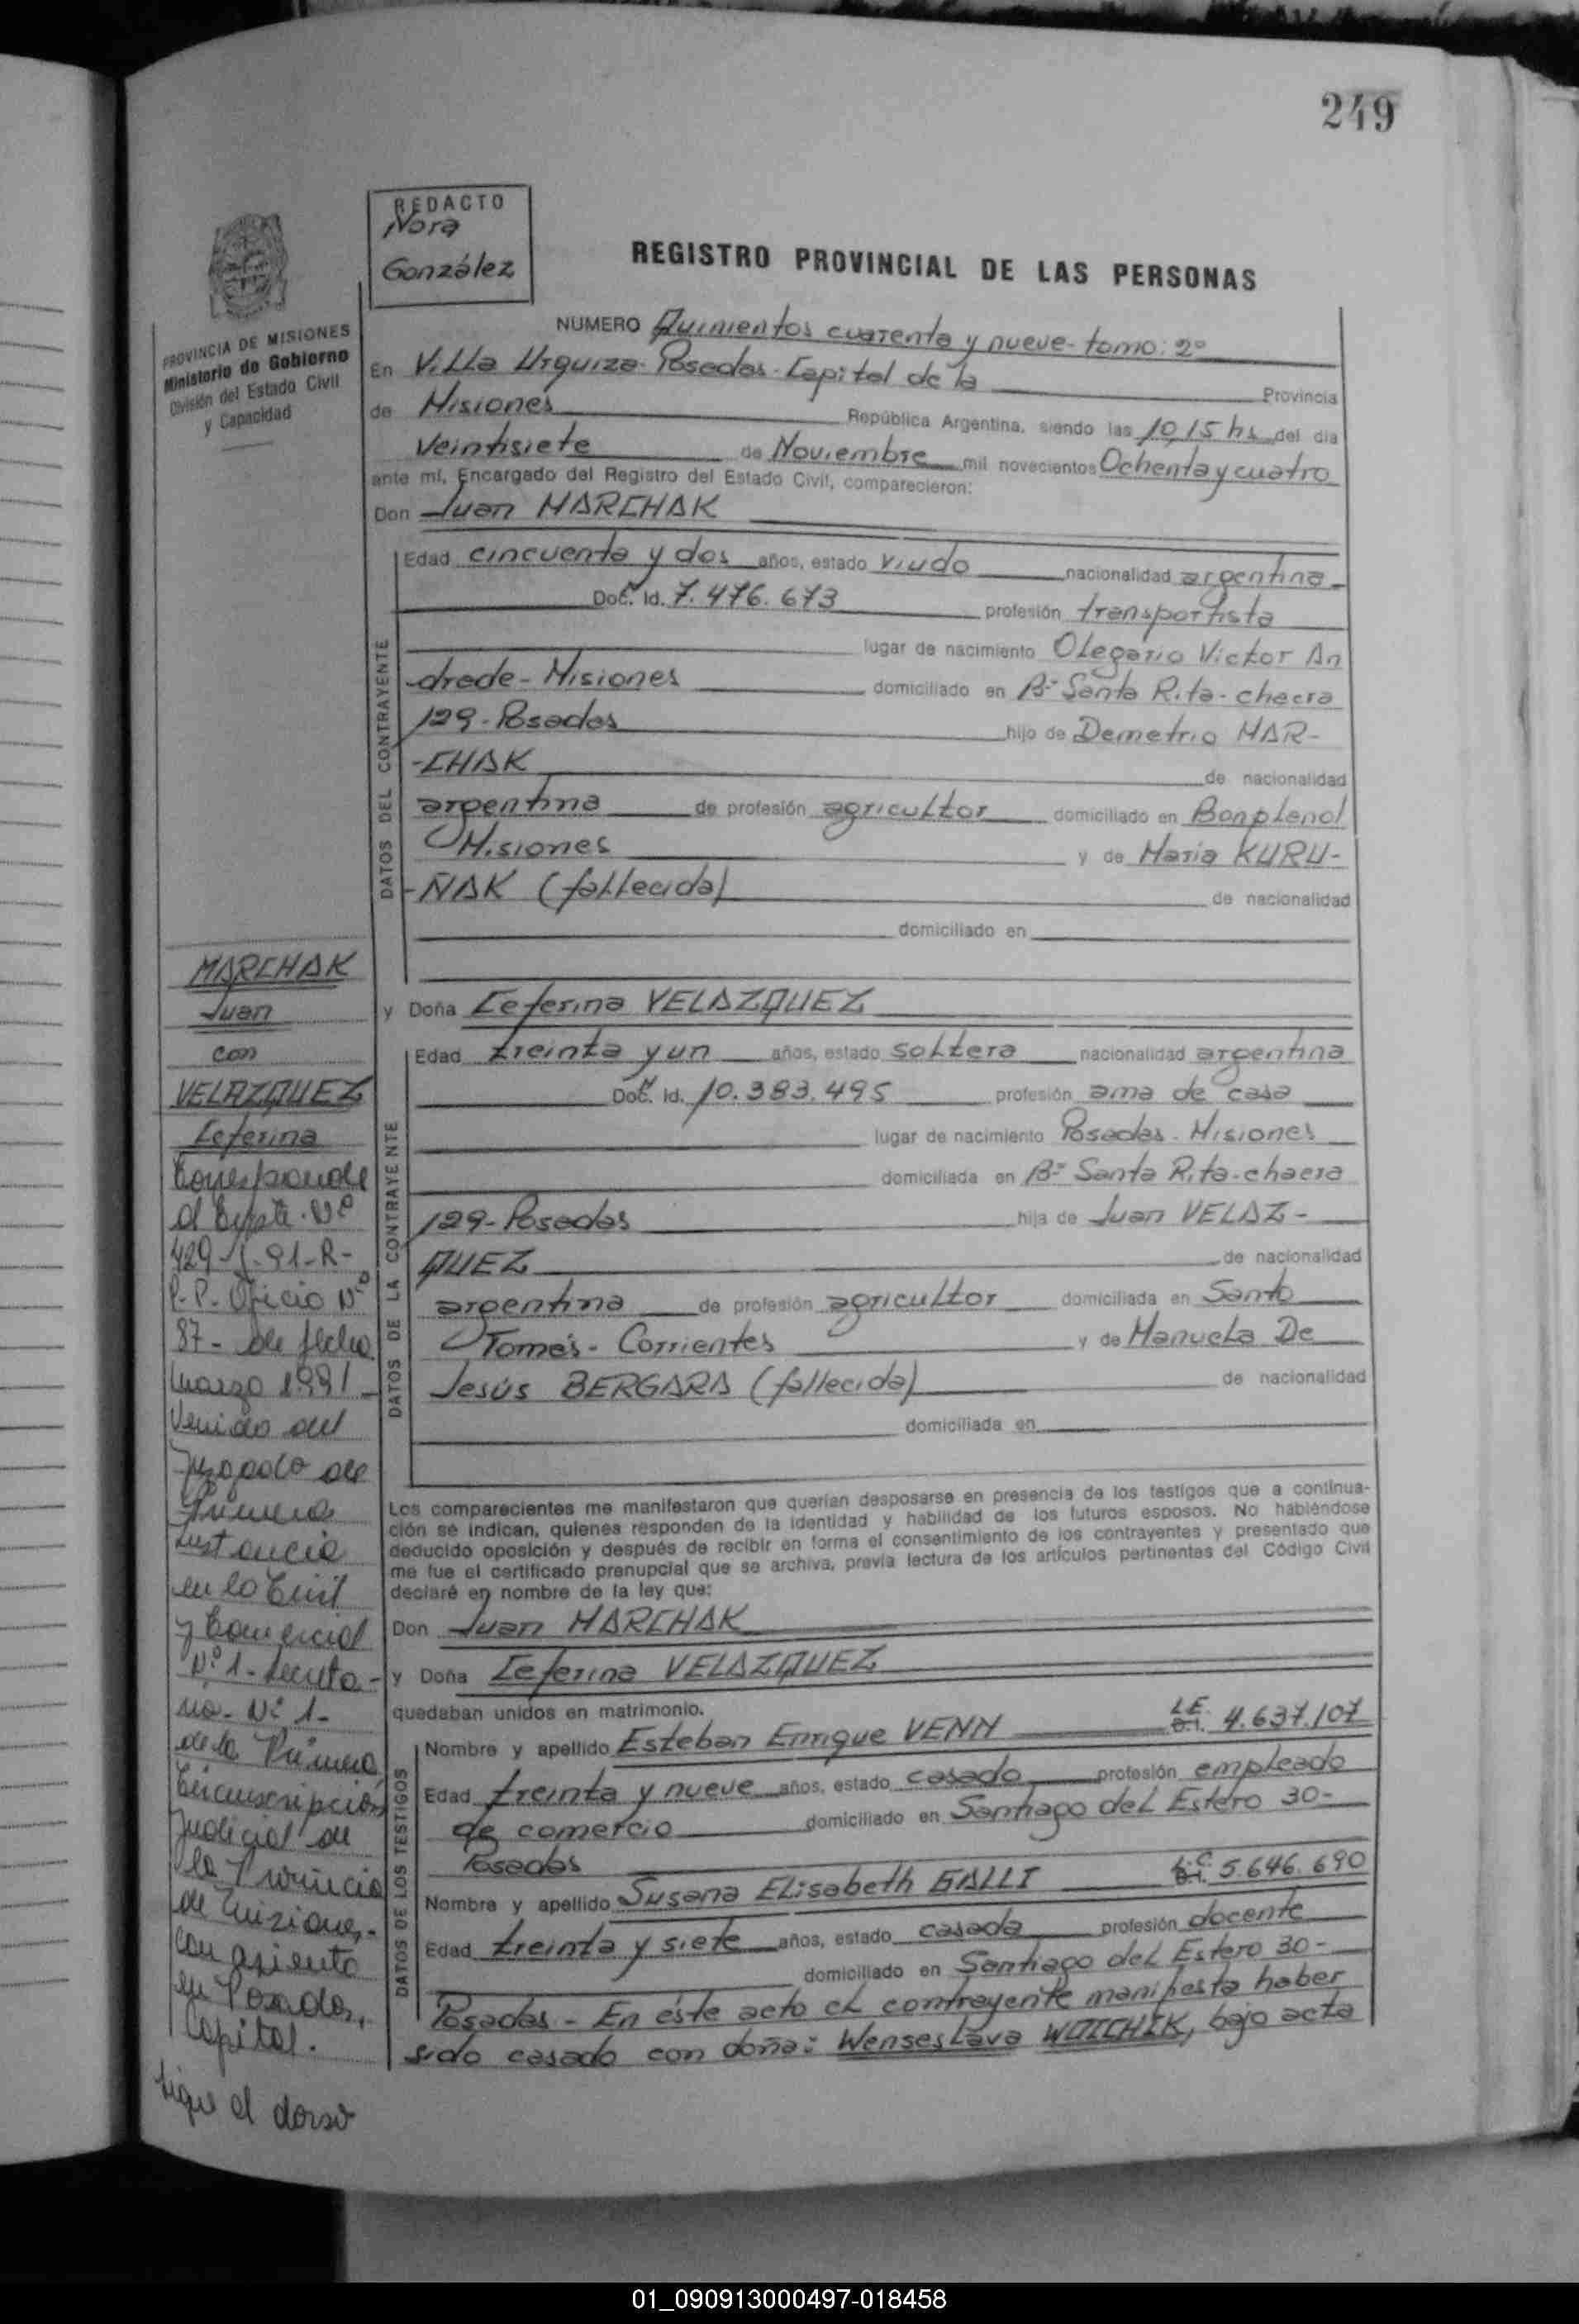 249
REDACTO
Nora
González
REGISTRO PROVINCIAL DE LAS PERSONAS
PROVINCIA DE MISIONES
Ministerio de Gobierno
División del Estado Civil
y Capacidad
NUMERO Quinientos cuarenta y nueve - tomo: 2º
En Villa Urquiza - Posadas - Capital de la Provincia
de Misiones República Argentina, siendo las 10,15 hs del día
veintisiete de Noviembre mil novecientos Ochenta y cuatro
ante mí, Encargado del Registro del Estado Civil, comparecieron:
Don Juan MARCHAK
DATOS DEL CONTRAYENTE
Edad cincuenta y dos años, estado viudo nacionalidad argentina
Doc. Id. 7.476.673 profesión transportista
lugar de nacimiento Olegario Victor An
-drade - Misiones domiciliado en Bº Santa Rita - chacra
129 - Posadas hijo de Demetrio MAR-
-CHAK de nacionalidad
argentina de profesión agricultor domiciliado en Bonpland
Misiones y de Maria KURU-
-ÑAK (fallecida) de nacionalidad
domiciliado en
y Doña Ceferina VELAZQUEZ
DATOS DE LA CONTRAYENTE
Edad treinta y un años, estado soltera nacionalidad argentina
Doc. Id. 10.383.495 profesión ama de casa
lugar de nacimiento Posadas - Misiones
domiciliada en Bº Santa Rita - chacra
129 - Posadas hija de Juan VELAZ-
QUEZ de nacionalidad
argentina de profesión agricultor domiciliada en Santo
Tomé - Corrientes y de Manuela De
Jesús BERGARA (fallecida) de nacionalidad
domiciliada en
Los comparecientes me manifestaron que querían desposarse en presencia de los testigos que a continua-
ción se indican, quienes responden de la identidad y habilidad de los futuros esposos. No habiéndose
deducido oposición y después de recibir en forma el consentimiento de los contrayentes y presentado que
me fue el certificado prenupcial que se archiva, previa lectura de los artículos pertinentes del Código Civil
declaré en nombre de la ley que:
Don Juan MARCHAK
y Doña Ceferina VELAZQUEZ
quedaban unidos en matrimonio.
DATOS DE LOS TESTIGOS
Nombre y apellido Esteban Enrique VENN L.E. D.I. 4.637.107
Edad treinta y nueve años, estado casado profesión empleado
de comercio domiciliado en Santiago del Estero 30-
Posadas
Nombre y apellido Susana Elisabeth GALLI L.C. D.I. 5.646.690
Edad treinta y siete años, estado casada profesión docente
domiciliado en Santiago del Estero 30-
Posadas - En éste acto el contrayente manifiesta haber
sido casado con doña: Wenseslava WOICHIK, bajo acta
MARCHAK
Juan
con
VELAZQUEZ
Ceferina
Corresponde
al Expte. Nº
429- -91-R-
P.P. Oficio Nº
87- de fecha
marzo 1991
Venido del
Juzgado de
Primera
Instancia
en lo Civil
y Comercial
Nº 1- Secreta-
ría- Nº 1-
de la Primera
Circunscripción
Judicial de
la Provincia
de Misiones-
con asiento
en Posadas,
Capital.
sigue al dorso
01_090913000497-018458